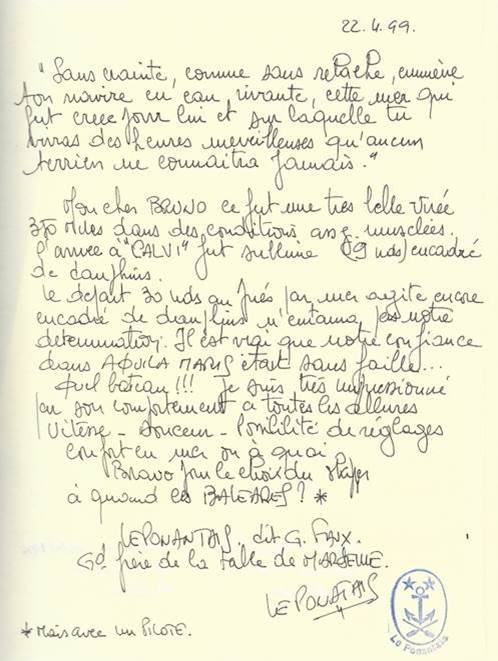 22.4.99.
"Sans crainte, comme sans relâche, emmène
ton navire en eau vivante, cette mer qui
fut créée pour lui et sur laquelle tu
vivras des heures merveilleuses qu'aucun
terrien ne connaitra jamais."
Mon cher BRUNO ce fut une très belle virée
350 Miles dans des conditions assez musclées.
l'arrivée à "CALVI" fut sublime (9 nds) encadré
de dauphins.
Le départ 30 nds au près par mer agitée encore
encadré de dauphins n'entama pas notre
détermination. Il est vrai que notre confiance
dans AQUILA MARIS était sans faille...
Quel bateau!!! Je suis très impressionné
par son comportement à toutes les allures
Vitesse - douceur - Possibilité de réglages
confort en mer ou à quai
Bravo pour le choix du
à quand les BALEARES? *
LE PONANTAIS dit G.
Gd frère de la table de MARSEILLE.
LE PONANTAIS
Le Ponantais
* Mais avec un PILOTE.